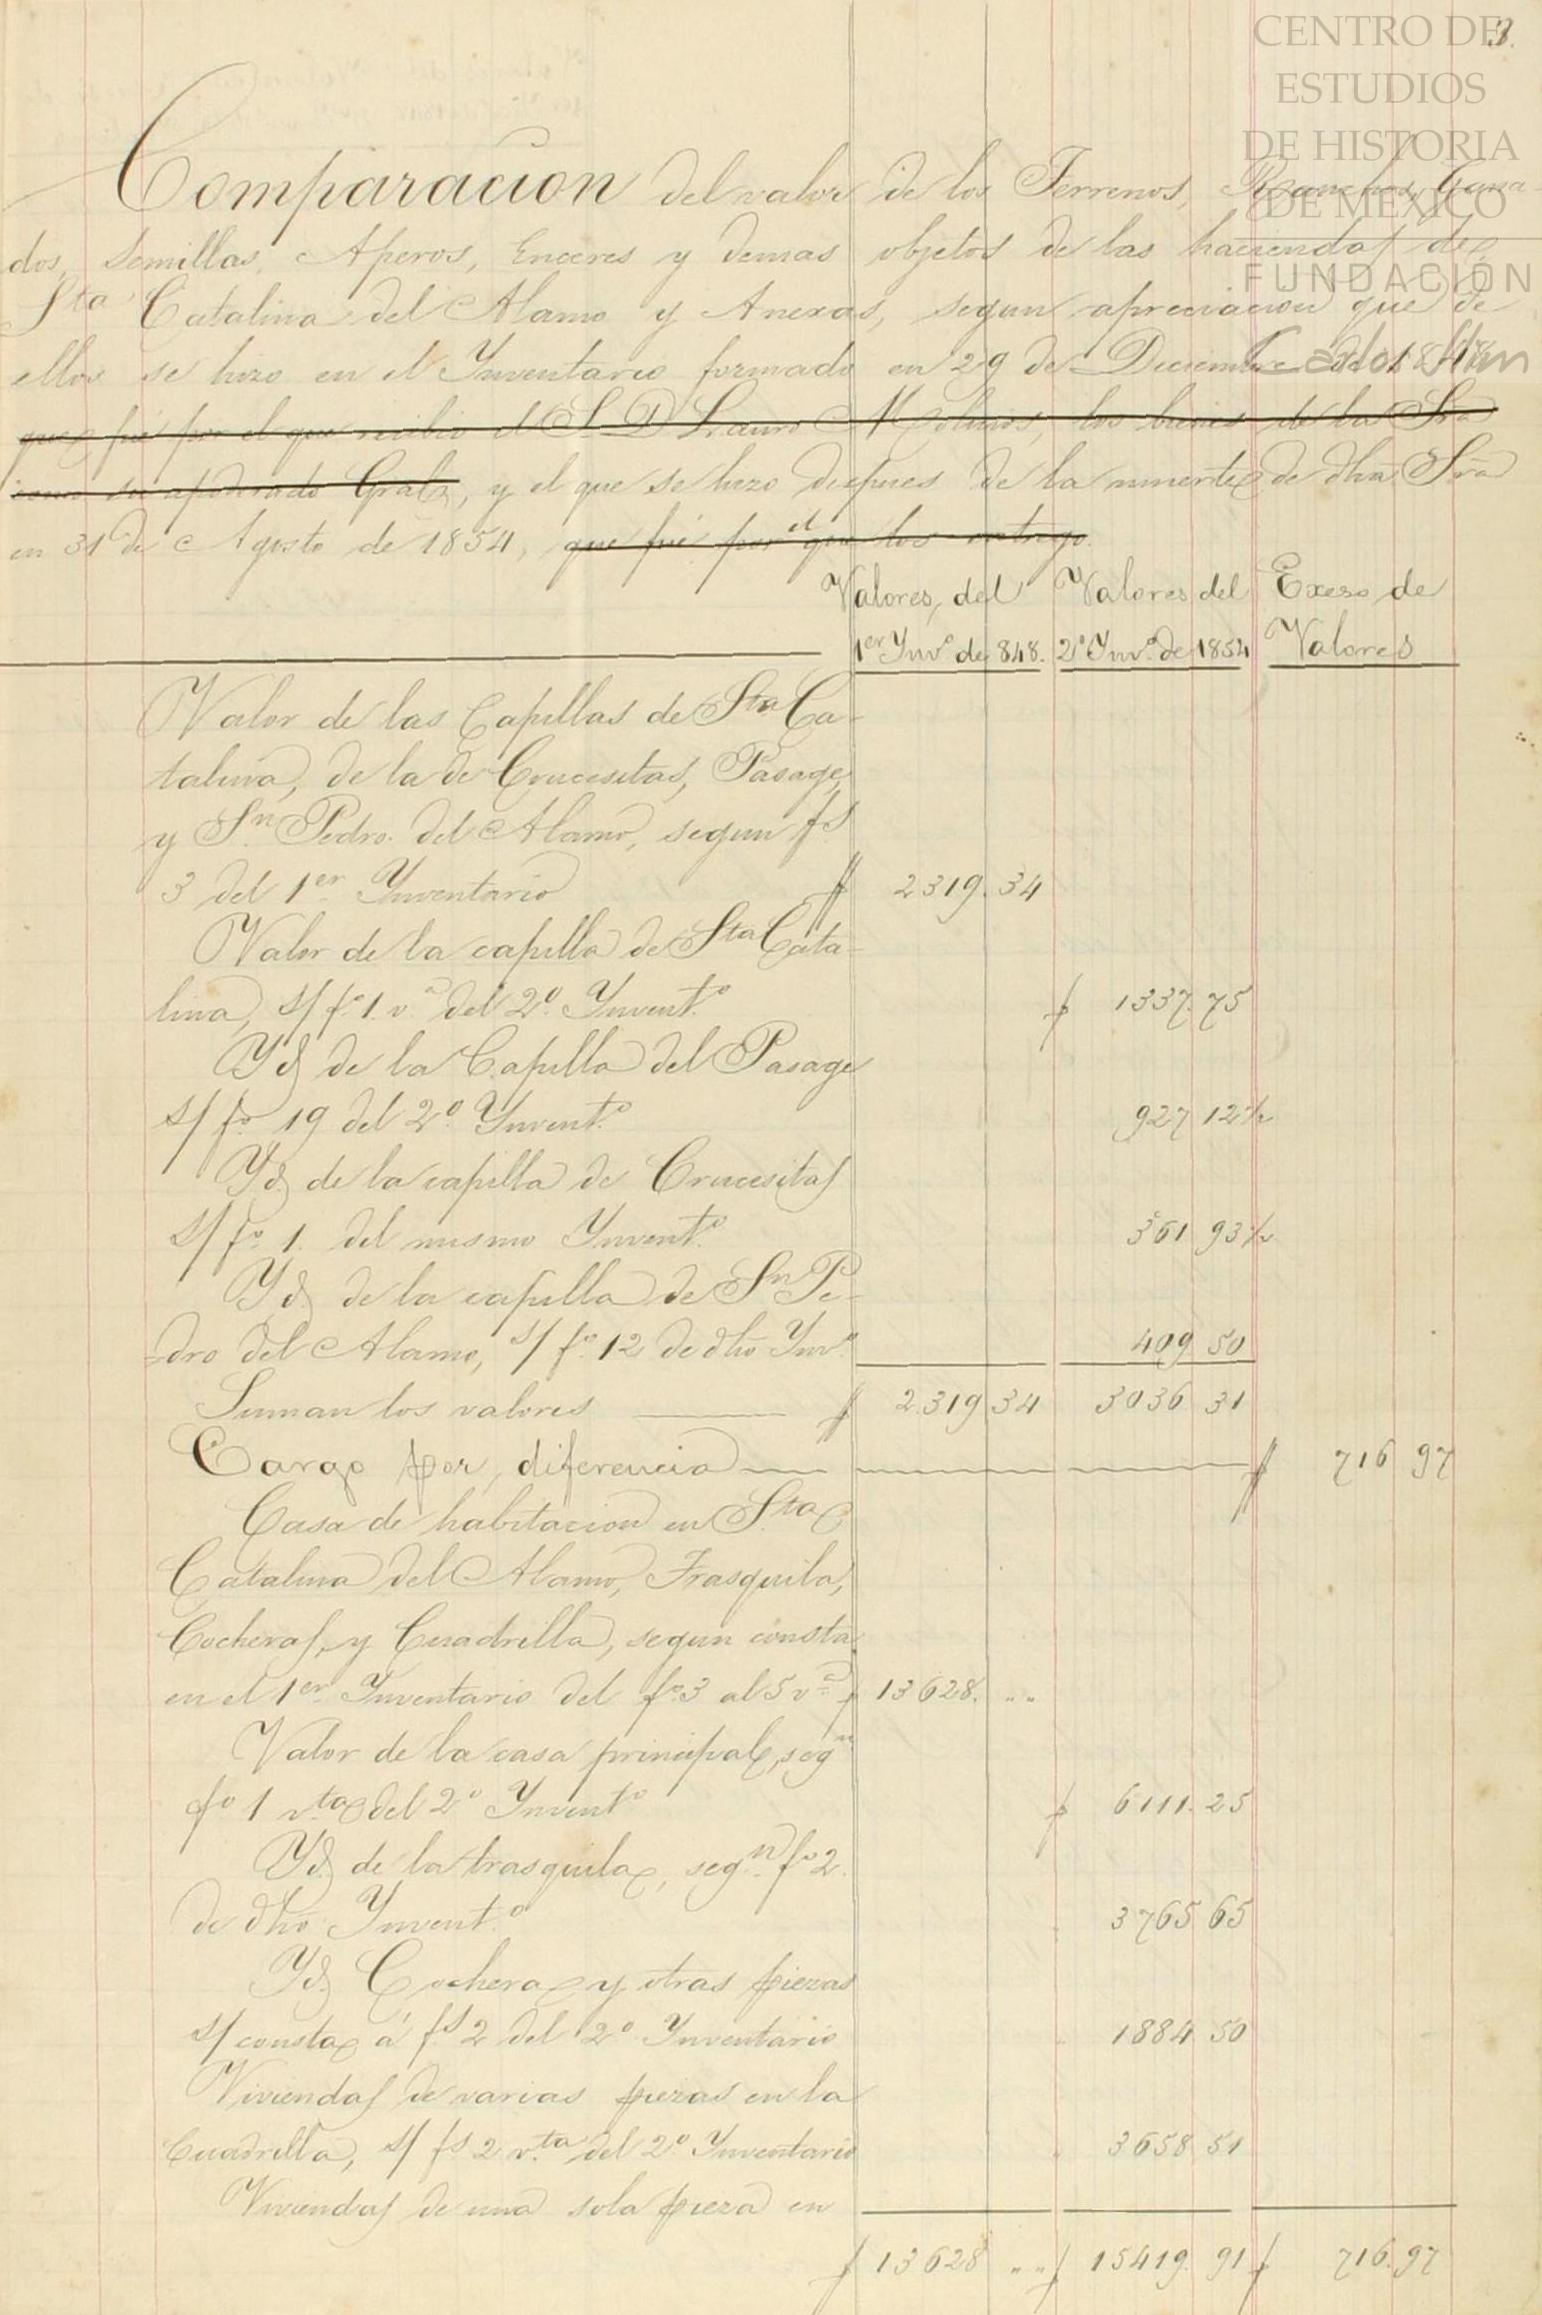 3.
CENTRO DE
ESTUDIOS
DE HISTORIA
DE MEXICO
FUNDACIÓN
Carlos Slim
Comparacion del valor de los Terrenos, Ranchos, Gana-
dos, Semillas, Aperos, Enceres y demas objetos de las haciendas de
Sta Catalina del Alamo y Anexas, segun apreciacion que de
ellos se hizo en el Ynventario formado en 29 de Diciembre de 1848
que fué por el que recibió el S. D. Lauro los bienes de la Sra
como su apoderado Gral, y el que se hizo despues de la muerte de dha Sra
en 31 de Agosto de 1854, que fué por el que los entrego.
Valores, del Valores del Exeso de
1er Ynvo de 848. 2o Ynvo de 1854 Valores
Valor de las Capillas de Sta Ca-
talina, de la de Crucesitas, Pasage,
y Sn Pedro del Alamo, segun fs
3 del 1er Ynventario $ 2319.34
Valor de la capilla de Sta Cata-
lina, s/ fo 1. va del 2o Ynvento $ 1337.75
Yd de la Capilla del Pasage
s/ fo 19 del 2o Ynvento 927 12½
Yd de la capilla de Crucesitas
s/ fo 1. del mismo Ynvento 361 93½
Yd de la capilla de Sn Pe-
dro del Alamo, s/ fo 12 de dho Ynvo 409 50
Suman los valores $ 2319 34 3036 31
Cargo por, diferencia $ 716 97
Casa de habitacion en Sta
Catalina del Alamo, Trasquila,
Cocheras, y Cuadrilla, segun consta
en el 1er Ynventario del fo 3 al 5 va $ 13628. " "
Valor de la casa principal, segn
fo 1 vta del 2o Ynvento $ 6111.25
Yd de la trasquila, segn fo 2.
de dho Ynvento 3765 65
Yd Cochera y otras piezas
s/ consta á fs 2 del 2o Ynventario 1884 50
Viviendas de varias piezas en la
Cuadrilla, s/ fs 2 vta del 2o Ynventario 3658 51
Viviendas de una sola pieza en
$ 13628 " " $ 15419. 91 $ 716.97